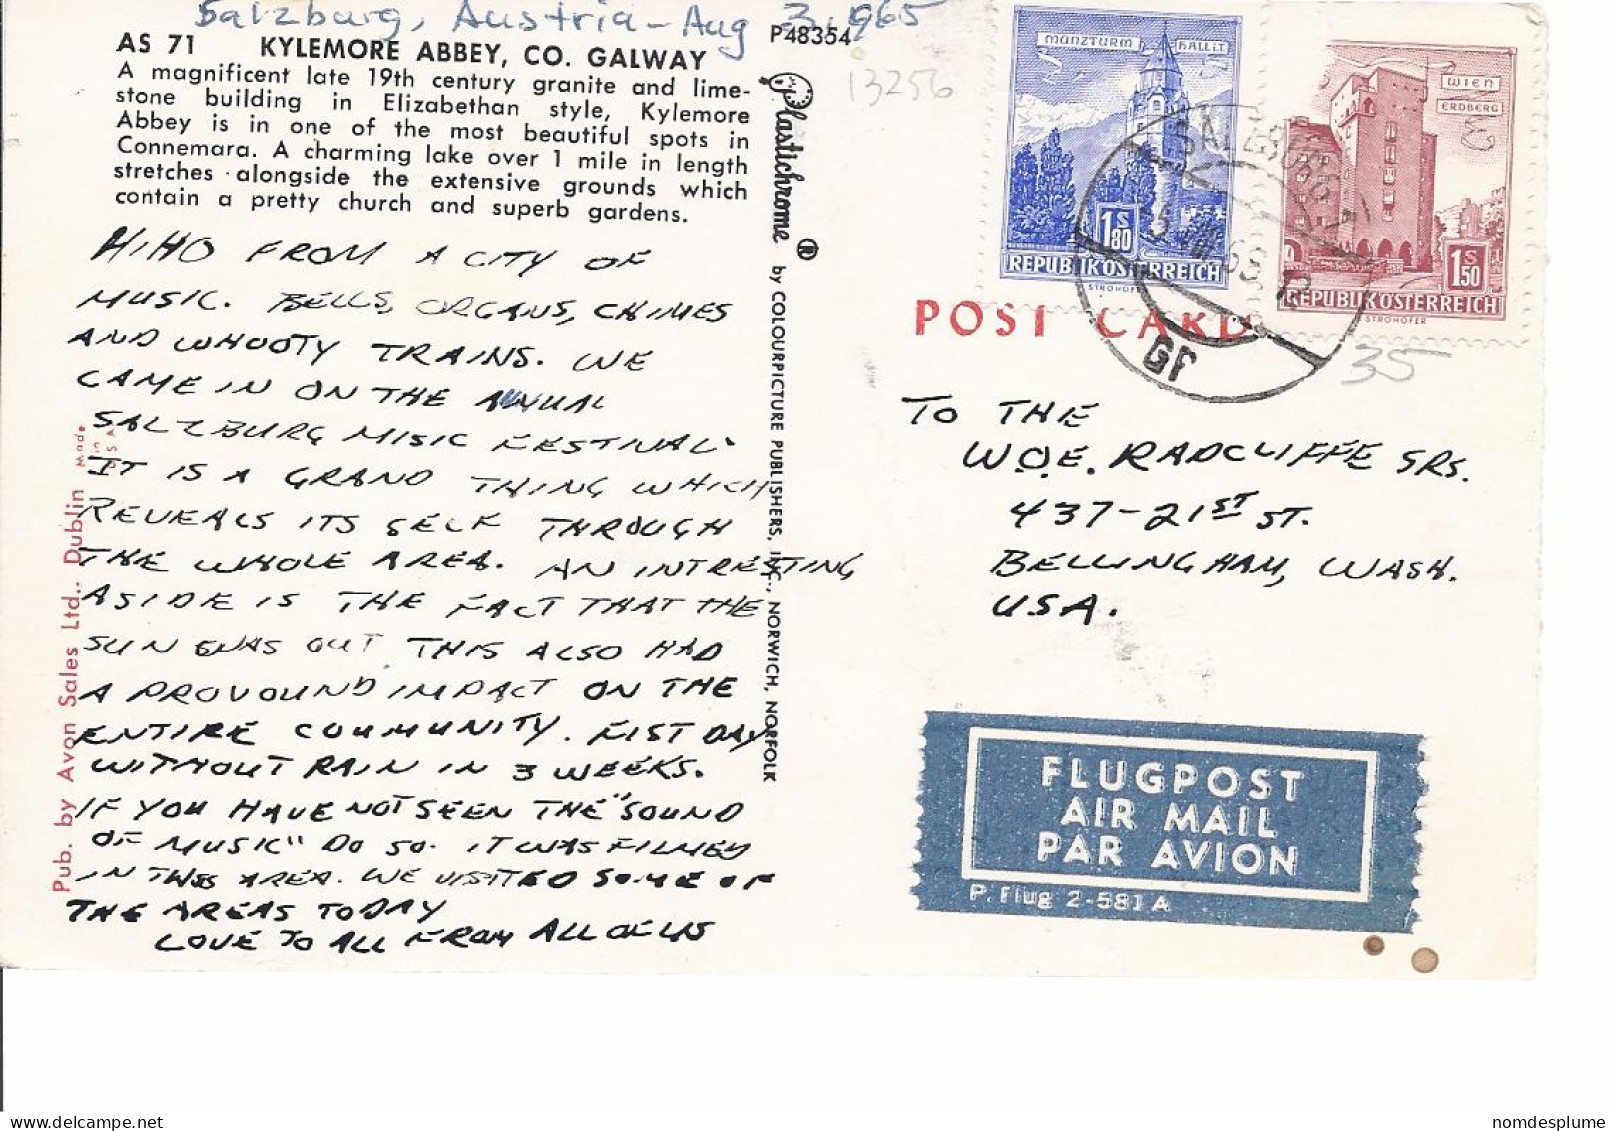 Salzburg, Austria - Aug 3, 1965
P48354
AS 71 KYLEMORE ABBEY, CO. GALWAY
A magnificent late 19th century granite and lime-
stone building in Elizabethan style, Kylemore
Abbey is in one of the most beautiful spots in
Connemara. A charming lake over 1 mile in length
stretches alongside the extensive grounds which
contain a pretty church and superb gardens.
13256
HIHO FROM A CITY OF
MUSIC. BELLS, ORGANS, CHIMES
AND WHOOTY TRAINS. WE
CAME IN ON THE ANNUAL
SALZBURG MISIC FESTIVAL.
IT IS A GRAND THING WHICH
REVEALS ITS SELF THROUGH
THE WHOLE AREA. AN INTRESTING
ASIDE IS THE FACT THAT THE
SUN WAS OUT THIS ALSO HAD
A PROVOUND IMPACT ON THE
ENTIRE COMMUNITY. FIST DAY
WITHOUT RAIN IN 3 WEEKS.
IF YOU HAVE NOT SEEN THE "SOUND
OF MUSIC" DO SO. IT WAS FILMED
IN THIS AREA. WE VISITED SOME OF
THE AREAS TODAY
LOVE TO ALL FROM ALL OF US
Pub. by Avon Sales Ltd., Dublin
Made
in
USA
Plastichrome ® by COLOURPICTURE PUBLISHERS, INC., NORWICH, NORFOLK
MÜNZTURM HALL i.T.
1 S 80
REPUBLIK ÖSTERREICH
STROHOFER
WIEN
ERDBERG
1 S 50
REPUBLIK ÖSTERREICH
STROHOFER
SALZBURG
POST CARD
35
TO THE
W.O.E. RADCLIFFE SRS.
437-21ST ST.
BELLINGHAM, WASH.
U.S.A.
FLUGPOST
AIR MAIL
PAR AVION
P. Flug 2-581 A
nomdesplume